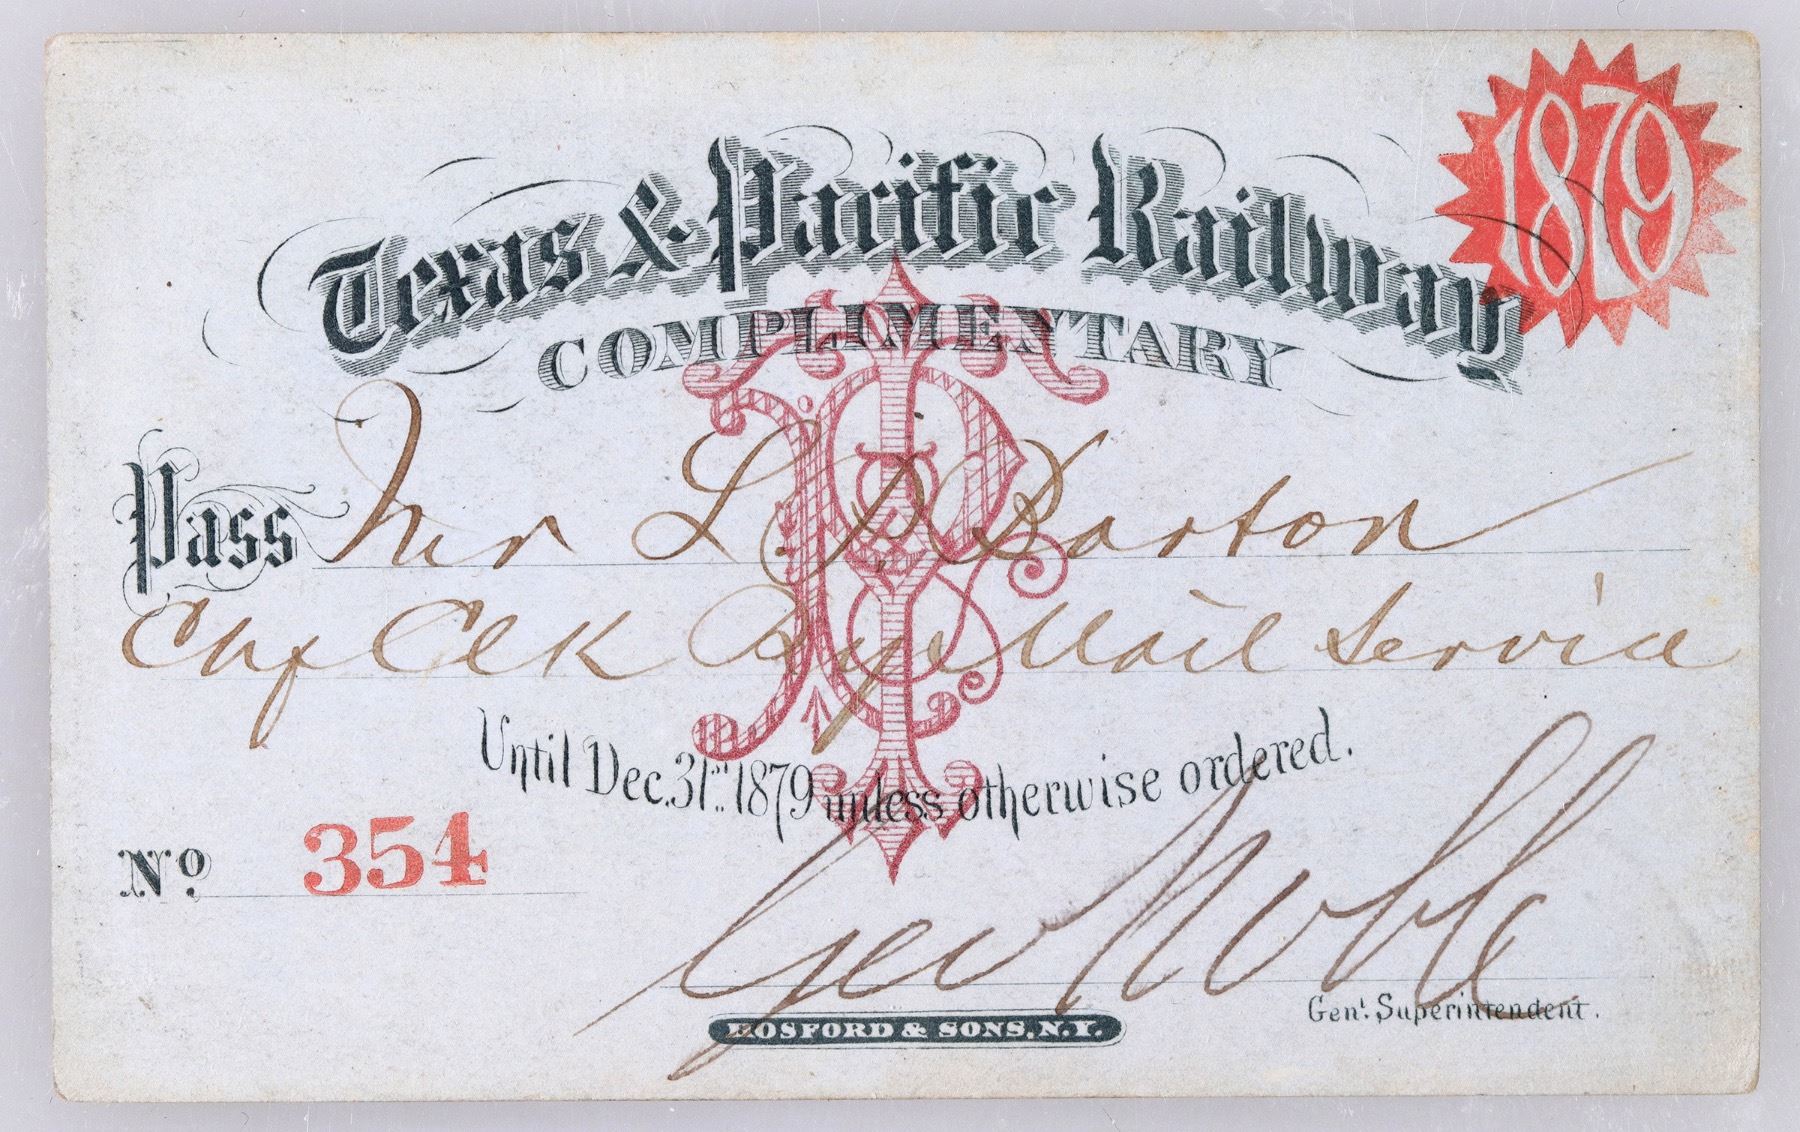 1879
Texas & Pacific Railway
COMPLIMENTARY
Pass Mr L. Barton
Chf Clk Ry Mail Service
Until Dec. 31st 1879 unless otherwise ordered.
No 354
Geo Noble
Genl. Superintendent.
HOSFORD & SONS, N.Y.